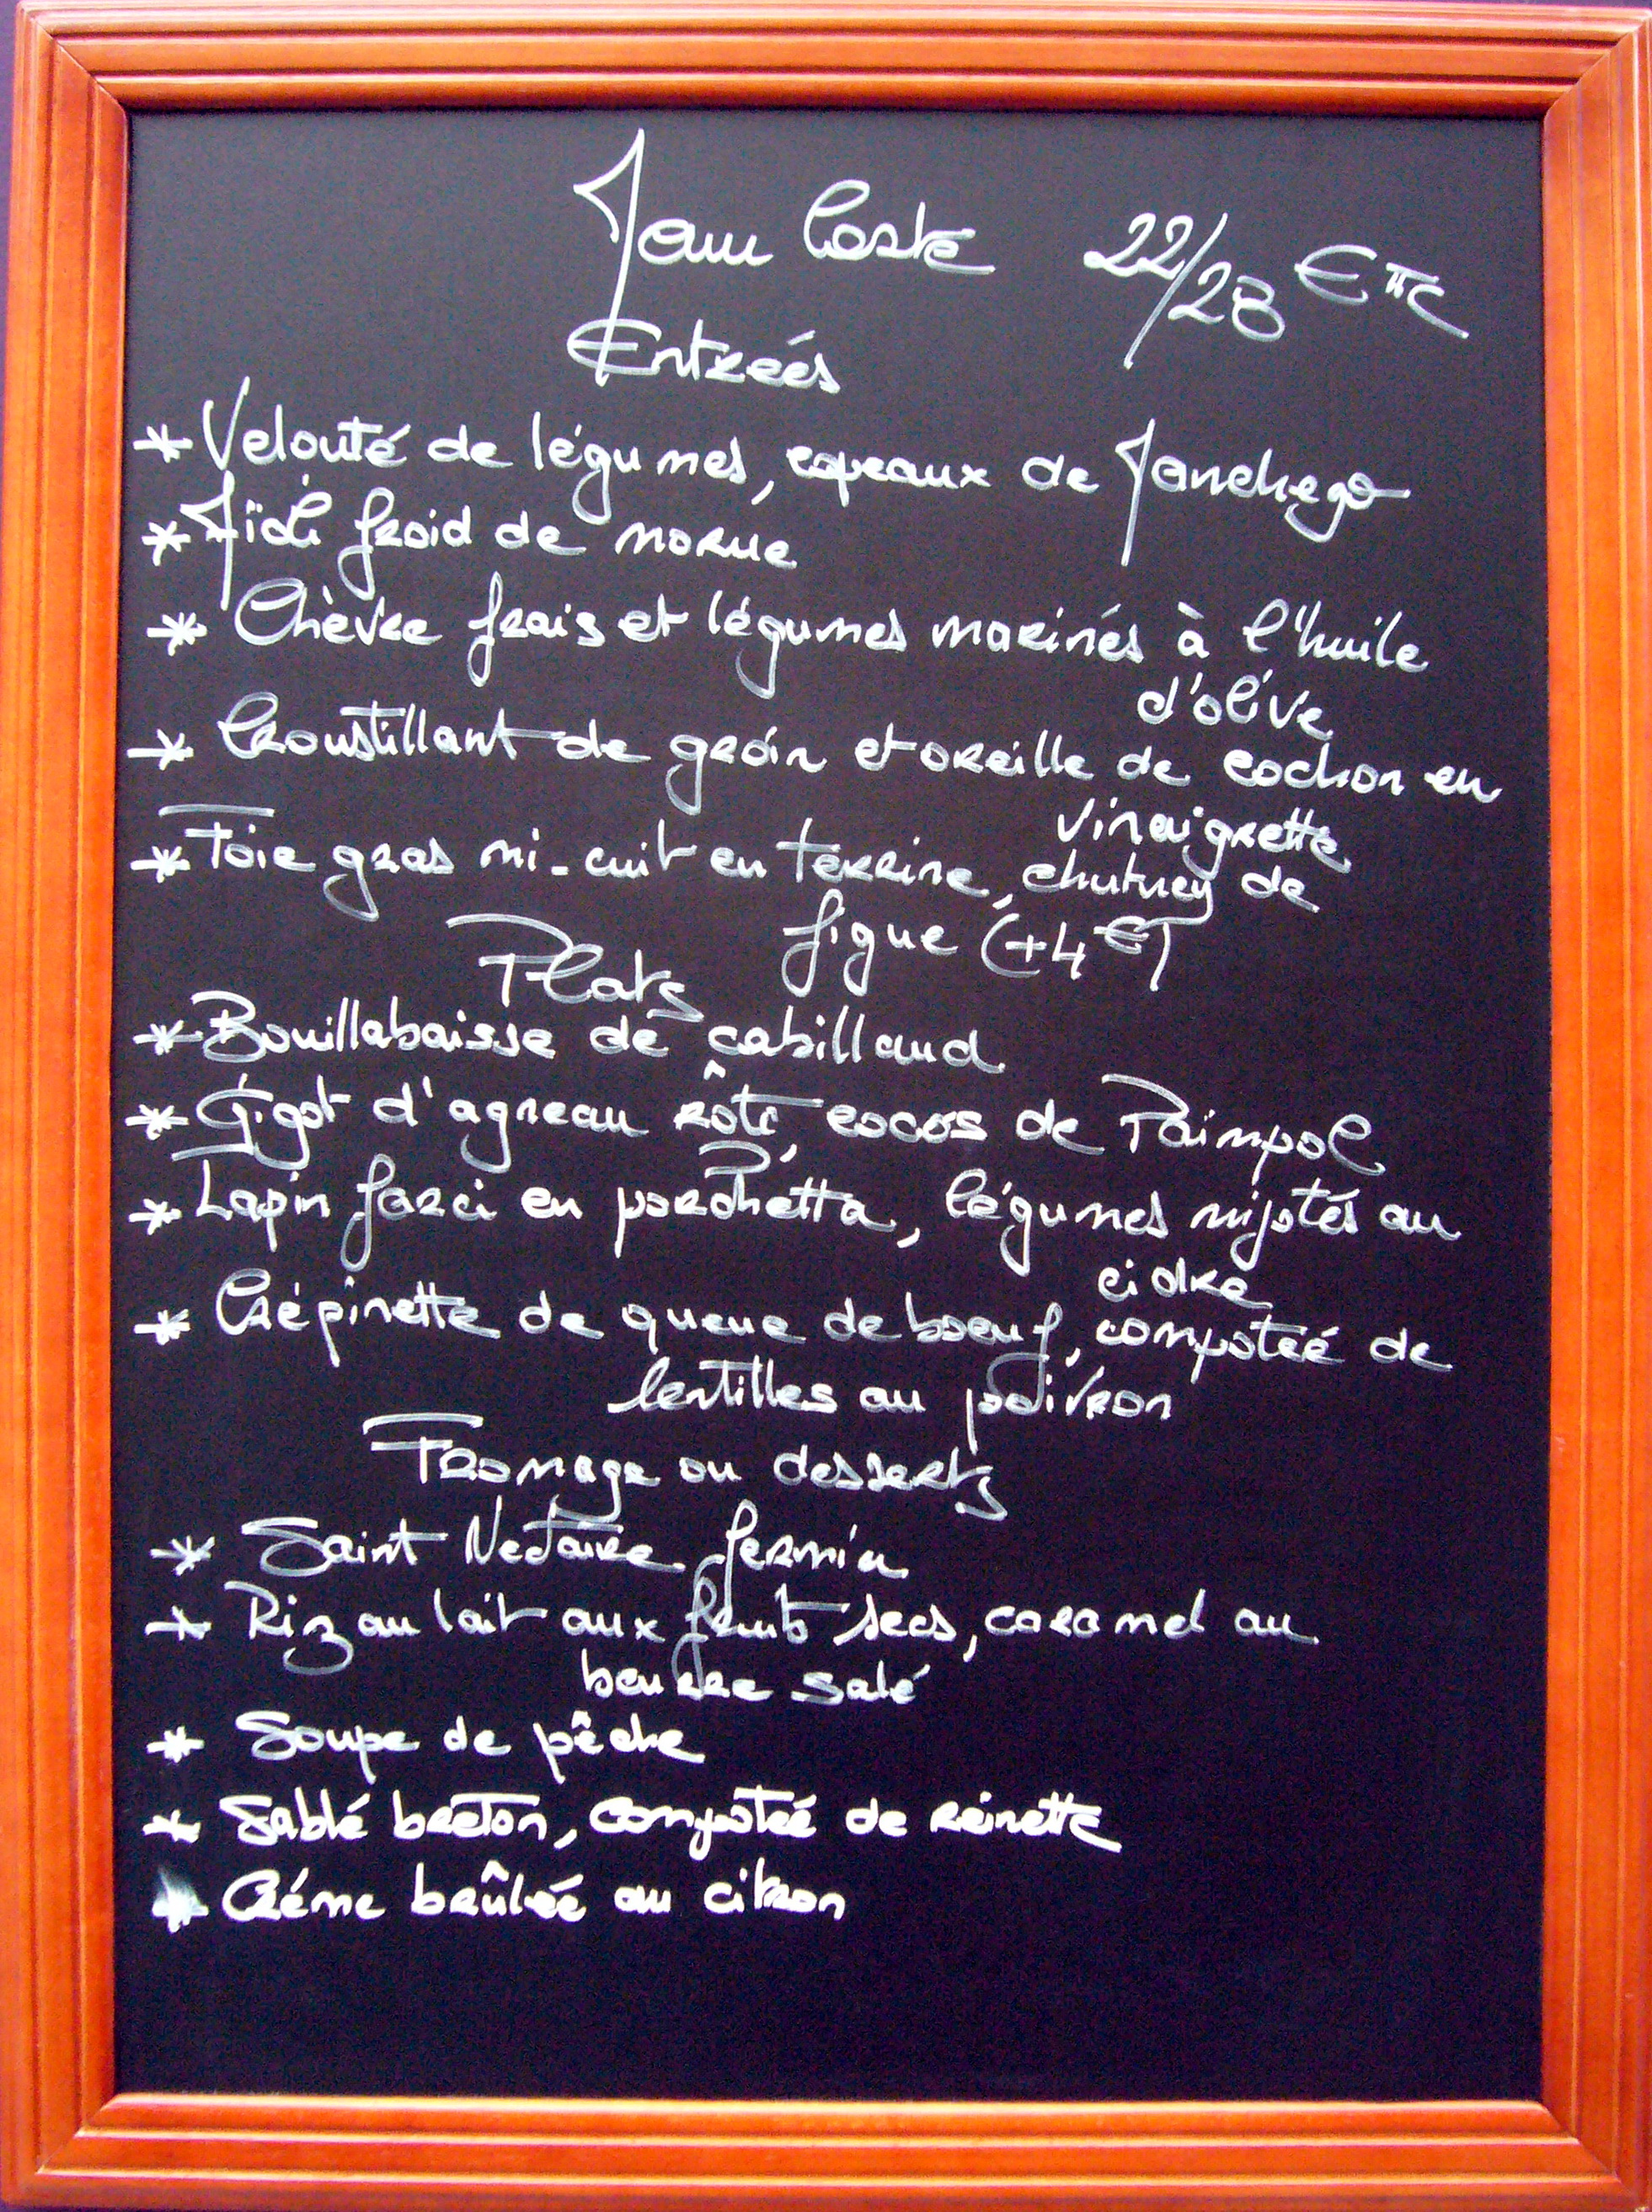 Menu Carte 22/28 € TTC
Entrées
* Velouté de légumes, copeaux de Manchego
* Aïoli froid de morue
* Chèvre frais et légumes marinés à l'huile
d'olive
* Croustillant de groin et oreille de cochon en
vinaigrette
* Foie gras mi-cuit en terrine, chutney de
figue (+4€)
Plats
* Bouillabaisse de cabillaud
* Gigot d'agneau rôti, cocos de Paimpol
* Lapin farci en porchetta, légumes mijotés au
cidre
* Crépinette de queue de boeuf, compotée de
lentilles au poivron
Fromage ou desserts
* Saint Nectaire fermier
* Riz au lait aux fruits secs, caramel au
beurre salé
* Soupe de pêche
* Sablé breton, compotée de reinette
* Créme brûlée au citron